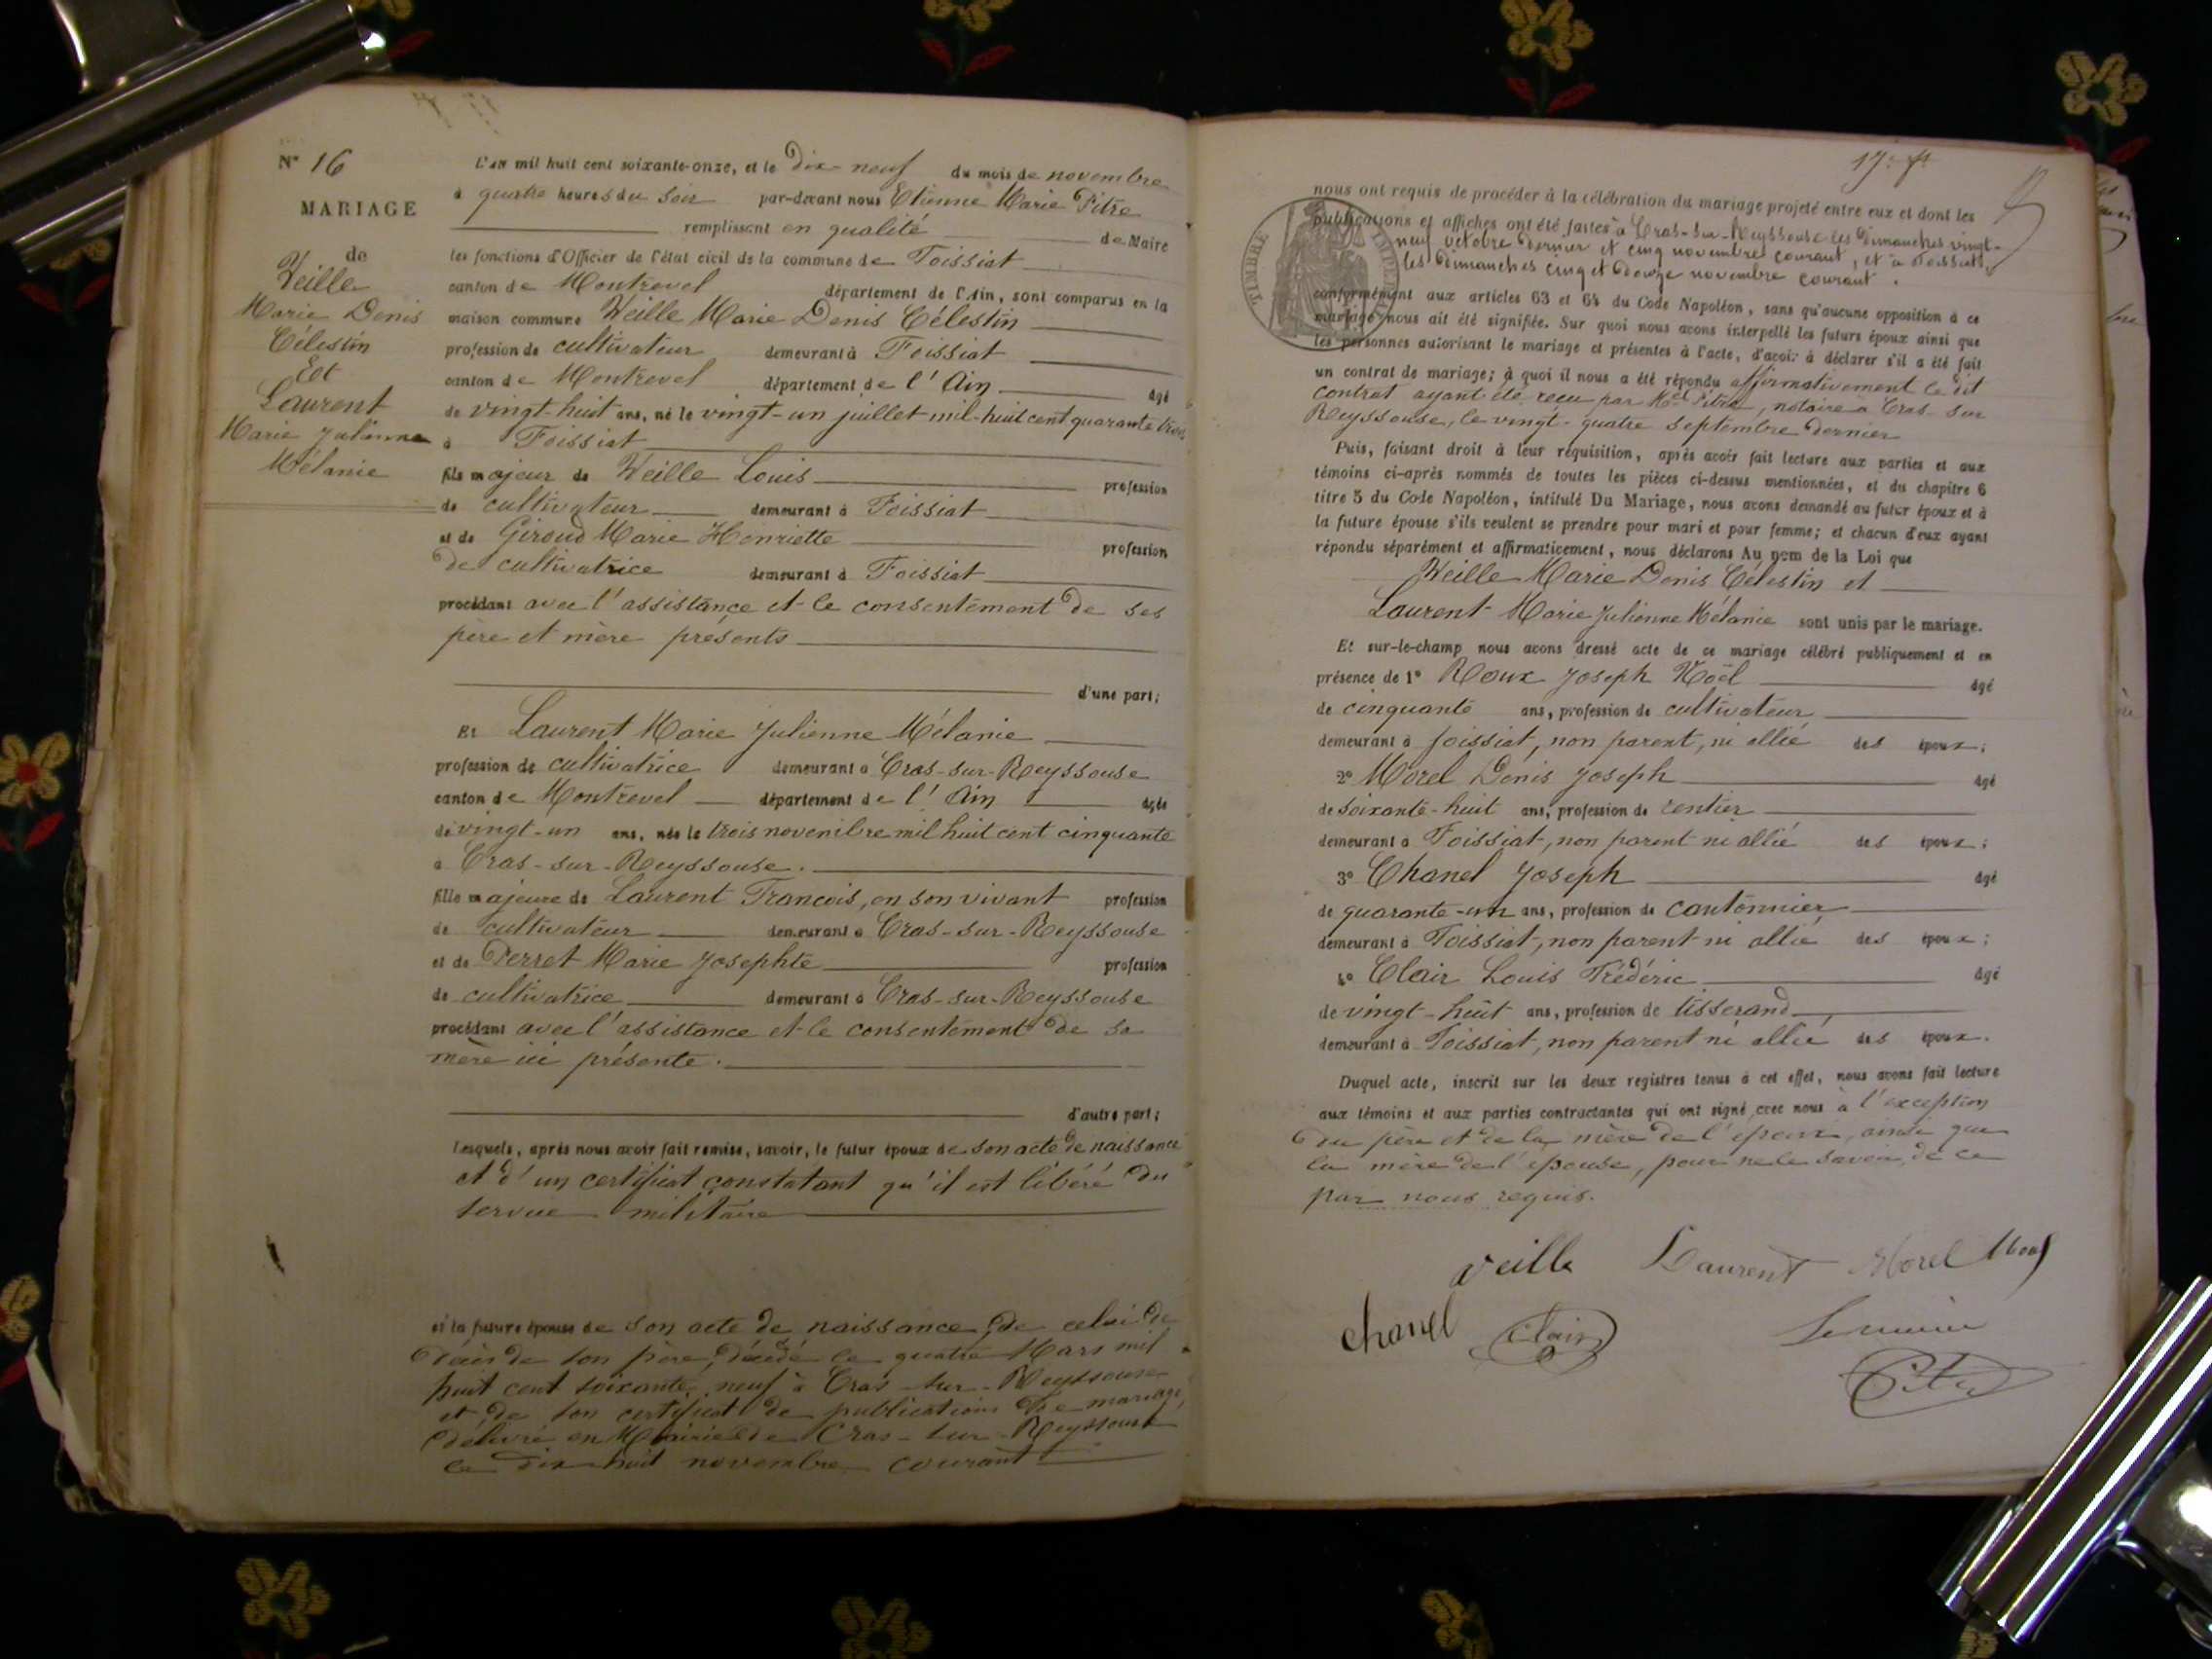 N° 16
MARIAGE
de
Veille
Marie Denis
Célestin
Et
Laurent
Marie Julienne
Mélanie
L'an mil huit cent soixante-onze, et le dix-neuf du mois de novembre
à quatre heures du soir par-devant nous Etienne Marie Pitre
remplissant en qualité de Maire
les fonctions d'Officier de l'état civil de la commune de Foissiat
canton de Montrevel département de l'Ain, sont comparus en la
maison commune Veille Marie Denis Célestin
profession de cultivateur demeurant à Foissiat
canton de Montrevel département de l'Ain âgé
de vingt-huit ans, né le vingt-un juillet mil-huit cent quarante trois
à Foissiat
fils majeur de Veille Louis profession
de cultivateur demeurant à Foissiat
et de Giroud Marie Henriette profession
de cultivatrice demeurant à Foissiat
procédant avec l'assistance et le consentement de ses
père et mère présents
d'une part;
Et Laurent Marie Julienne Mélanie
profession de cultivatrice demeurant à Cras-sur-Reyssouse
canton de Montrevel département de l'Ain âgée
de vingt-un ans, née le trois novembre mil huit cent cinquante
à Cras-sur-Reyssouse.
fille majeure de Laurent François, en son vivant profession
de cultivateur demeurant à Cras-sur-Reyssouse
et de Perret Marie Josephte profession
de cultivatrice demeurant à Cras-sur-Reyssouse
procédant avec l'assistance et le consentement de sa
mère ici présente.
d'autre part;
Lesquels, après nous avoir fait remise, savoir, le futur époux de son acte de naissance
et d'un certificat constatant qu'il est libéré du
service militaire
et la future épouse de son acte de naissance, de celui de
décès de son père, décédé le quatre Mars mil
huit cent soixante neuf à Cras-sur-Reyssouse
et de son certificat de publications de mariage,
délivré en Mairie de Cras-sur-Reyssouse
le dix huit novembre courant
17e ft
nous ont requis de procéder à la célébration du mariage projeté entre eux et dont les
publications et affiches ont été faites à Cras-sur-Reyssouse les dimanches vingt-
neuf octobre dernier et cinq novembre courant, et à Foissiat,
les dimanches cinq et douze novembre courant.
TIMBRE IMPERIAL
conformément aux articles 63 et 64 du Code Napoléon, sans qu'aucune opposition à ce
mariage nous ait été signifiée. Sur quoi nous avons interpellé les futurs époux ainsi que
les personnes autorisant le mariage et présentes à l'acte, d'avoir à déclarer s'il a été fait
un contrat de mariage; à quoi il nous a été répondu affirmativement le dit
contrat ayant été reçu par Me Pitre, notaire à Cras-sur
Reyssouse, le vingt-quatre septembre dernier
Puis, faisant droit à leur réquisition, après avoir fait lecture aux parties et aux
témoins ci-après nommés de toutes les pièces ci-dessus mentionnées, et du chapitre 6
titre 5 du Code Napoléon, intitulé Du Mariage, nous avons demandé au futur époux et à
la future épouse s'ils veulent se prendre pour mari et pour femme; et chacun d'eux ayant
répondu séparément et affirmativement, nous déclarons Au nom de la Loi que
Veille Marie Denis Célestin et
Laurent Marie Julienne Mélanie sont unis par le mariage.
Et sur-le-champ nous avons dressé acte de ce mariage célébré publiquement et en
présence de 1° Roux Joseph Noël âgé
de cinquante ans, profession de cultivateur
demeurant à Foissiat, non parent, ni allié des époux;
2° Morel Denis Joseph âgé
de soixante-huit ans, profession de rentier
demeurant à Foissiat, non parent ni allié des époux;
3° Chanel Joseph âgé
de quarante-un ans, profession de cantonnier
demeurant à Foissiat, non parent ni allié des époux;
4° Clair Louis Frédéric âgé
de vingt-huit ans, profession de tisserand
demeurant à Foissiat, non parent ni allié des époux.
Duquel acte, inscrit sur les deux registres tenus à cet effet, nous avons fait lecture
aux témoins et aux parties contractantes qui ont signé avec nous à l'exception
du père et de la mère de l'époux, ainsi que
la mère de l'épouse, pour ne le savoir, de ce
par nous requis.
Veille Laurent Morel
Chanel Clair
Pitre